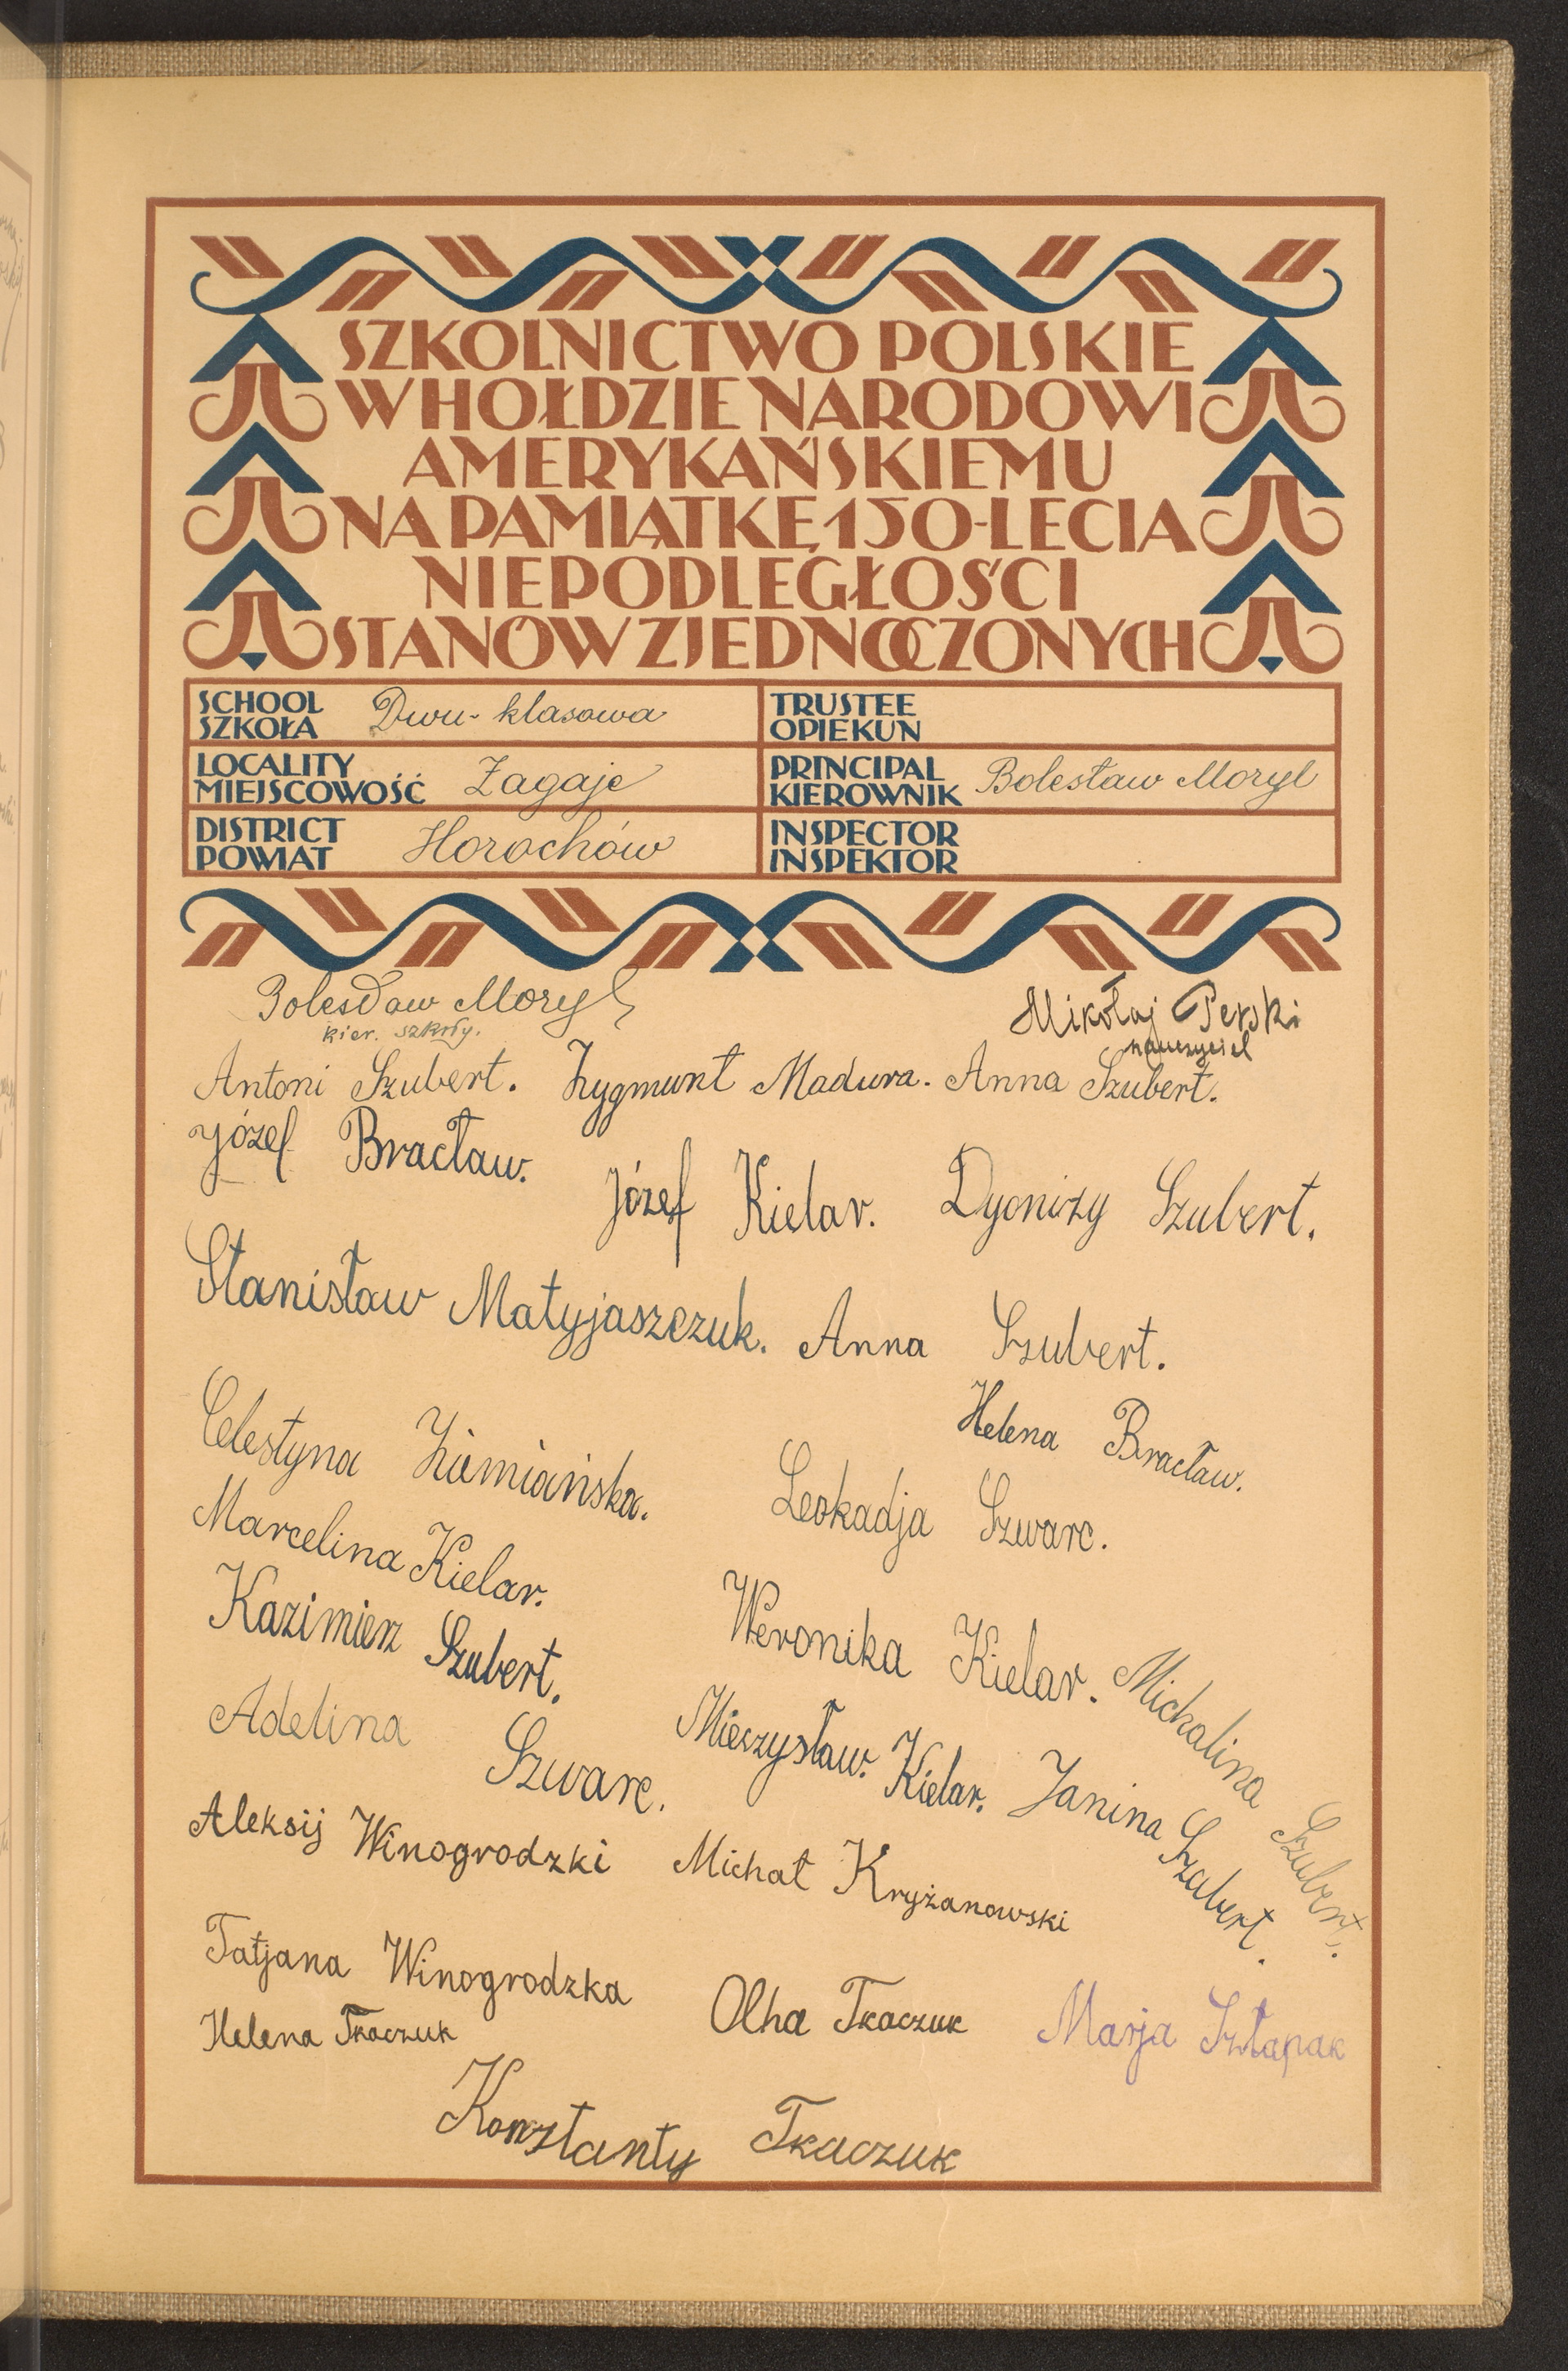 SZKOLNICTWO POLSKIE
W HOŁDZIE NARODOWI
AMERYKAŃSKIEMU
NA PAMIĄTKĘ 150-LECIA
NIEPODLEGŁOŚCI
STANÓW ZJEDNOCZONYCH
SCHOOL
SZKOŁA Dwu-klasowa
TRUSTEE
OPIEKUN
LOCALITY
MIEJSCOWOŚĆ Zagaje
PRINCIPAL
KIEROWNIK Bolesław Moryl
DISTRICT
POWIAT Horochów
INSPECTOR
INSPEKTOR
Bolesław Moryl
kier. szkoły.
Mikołaj Perski
nauczyciel
Antoni Szubert. Zygmunt Madura. Anna Szubert.
Józef Bracław. Józef Kielar. Dyonizy Szubert.
Stanisław Matyjaszczuk. Anna Szubert.
Celestyna Ziemiańska. Helena Bracław.
Leokadja Szwarc.
Marcelina Kielar.
Kazimierz Szubert. Weronika Kielar. Michalina Szubert.
Adelina Szwarc. Mieczysław. Kielar. Janina Szubert.
Aleksij Winogrodzki Michał Kryżanowski
Tatjana Winogrodzka Olha Tkaczuk Marja Sztapak
Helena Tkaczuk
Konztanty Tkaczuk